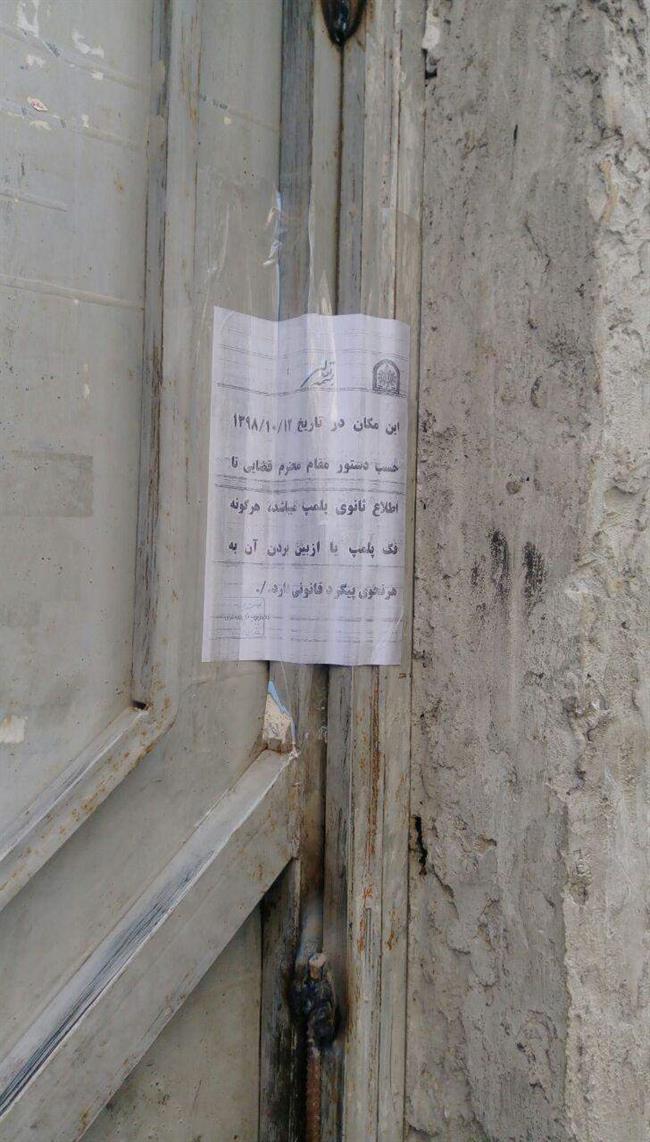 این مکان در تاریخ ۱۳۹۸/۱۰/۱۲
حسب دستور مقام محترم قضایی تا
اطلاع ثانوی پلمپ میباشد، هرگونه
فک پلمپ یا ازبین بردن آن به
هرنحوی پیگرد قانونی دارد./.